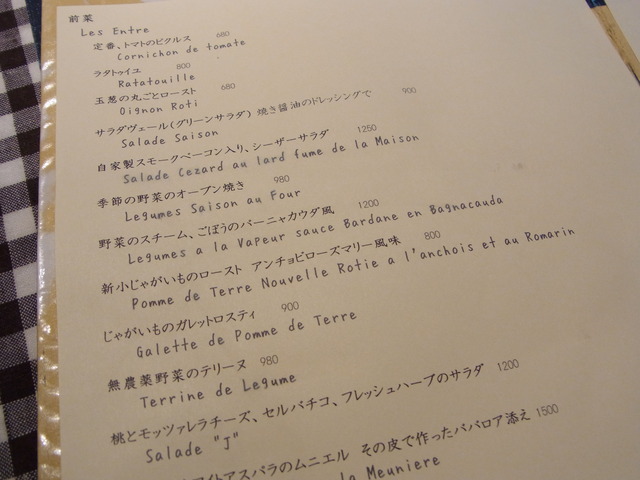 前菜
Les Entre
定番、トマトのピクルス 680
Cornichon de tomate
ラタトゥイユ 800
Ratatouille
玉葱の丸ごとロースト 680
Oignon Roti
サラダヴェール(グリーンサラダ) 焼き醤油のドレッシングで 900
Salade Saison
自家製スモークベーコン入り、シーザーサラダ 1250
Salade Cezard au lard fume de la Maison
季節の野菜のオーブン焼き 980
Legumes Saison au Four
野菜のスチーム、ごぼうのバーニャカウダ風 1200
Legumes a la Vapeur sauce Bardane en Bagnacauda
新小じゃがいものロースト アンチョビローズマリー風味 800
Pomme de Terre Nouvelle Rotie a l'anchois et au Romarin
じゃがいものガレットロスティ 900
Galette de Pomme de Terre
無農薬野菜のテリーヌ 980
Terrine de Legume
桃とモッツァレラチーズ、セルバチコ、フレッシュハーブのサラダ 1200
Salade "J"
ワイトアスパラのムニエル その皮で作ったババロア添え 1500
la Meuniere